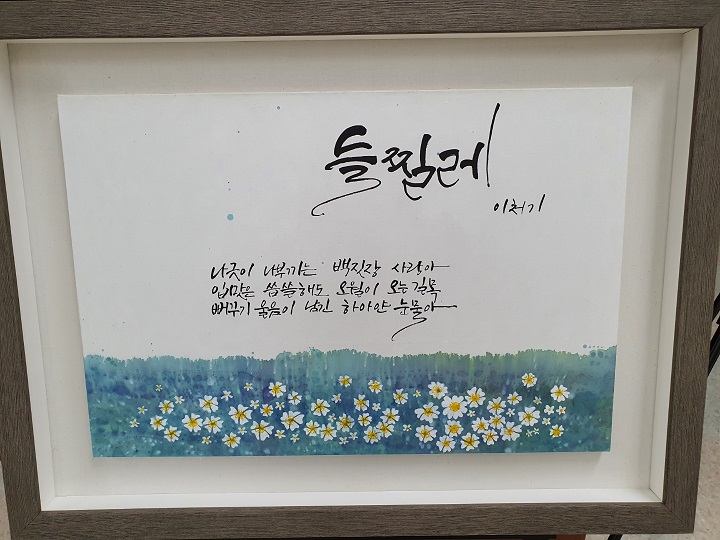 들찔레
이처기
나긋이 나부끼는 백짓장 사랑아
입맛은 씁쓸해도 오월이 오는 길목
뻐꾸기 울음이 남긴 하아얀 눈물아